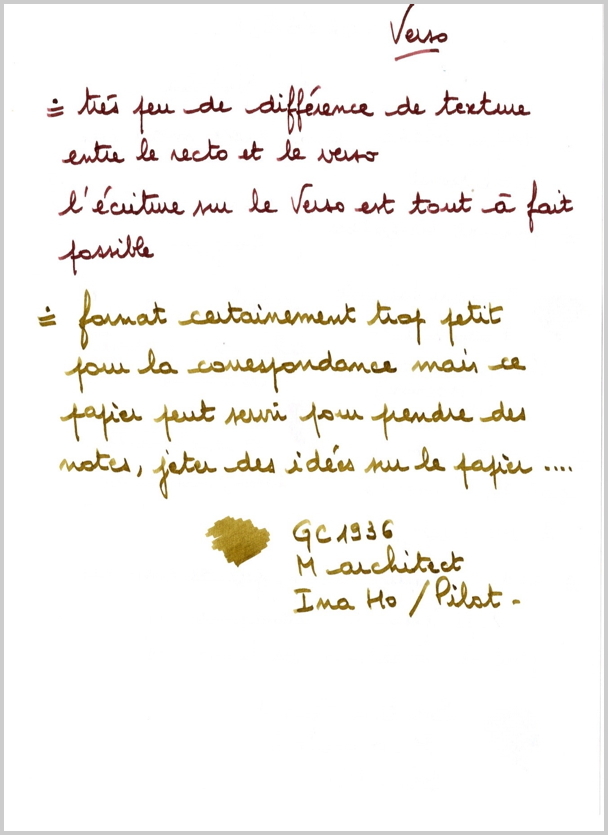 Verso
= très peu de différence de texture
entre le recto et le verso
l'écriture sur le Verso est tout à fait
possible
= format certainement trop petit
pour la correspondance mais ce
papier peut servir pour prendre des
notes, jeter des idées sur le papier ....
GC 1936
M architect
Ina Ho / Pilot -